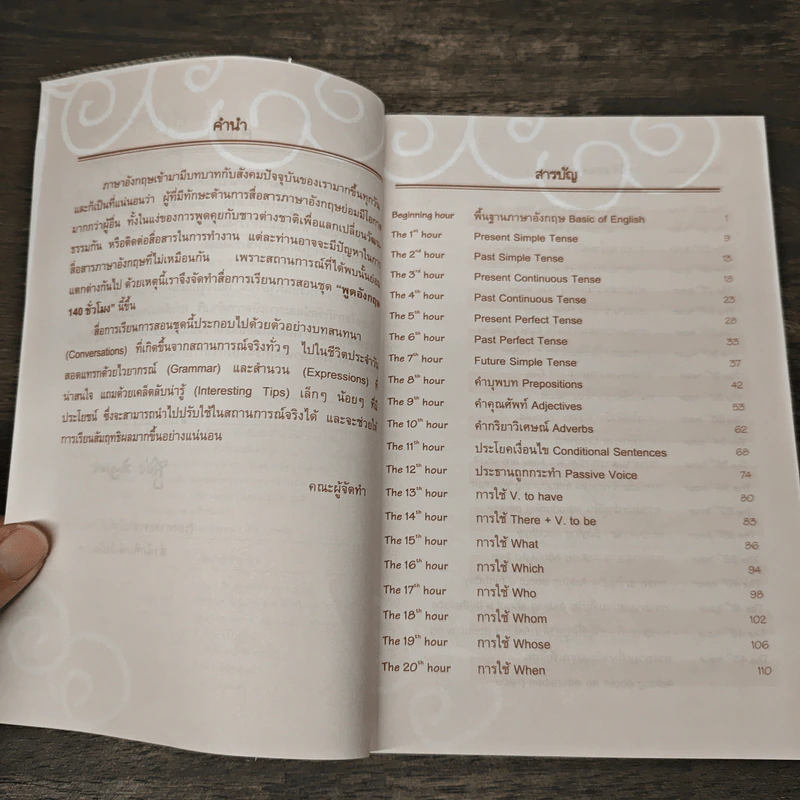 คำนำ
ภาษาอังกฤษเข้ามามีบทบาทกับสังคมปัจจุบันของเรามากขึ้นทุกวัน
และก็เป็นที่แน่นอนว่า ผู้ที่มีทักษะด้านการสื่อสารภาษาอังกฤษย่อมมีโอกาส
มากกว่าผู้อื่น ทั้งในแง่ของการพูดคุยกับชาวต่างชาติเพื่อแลกเปลี่ยนวัฒน
ธรรมกัน หรือติดต่อสื่อสารในการทำงาน แต่ละท่านอาจจะมีปัญหาในการ
สื่อสารภาษาอังกฤษที่ไม่เหมือนกัน เพราะสถานการณ์ที่ได้พบนั้นย่อม
แตกต่างกันไป ด้วยเหตุนี้เราจึงจัดทำสื่อการเรียนการสอนชุด "พูดอังกฤษ
140 ชั่วโมง" นี้ขึ้น
สื่อการเรียนการสอนชุดนี้ประกอบไปด้วยตัวอย่างบทสนทนา
(Conversations) ที่เกิดขึ้นจากสถานการณ์จริงทั่วๆ ไปในชีวิตประจำวัน
สอดแทรกด้วยไวยากรณ์ (Grammar) และสำนวน (Expressions) ที่
น่าสนใจ แถมด้วยเคล็ดลับน่ารู้ (Interesting Tips) เล็กๆ น้อยๆ ที่มี
ประโยชน์ ซึ่งจะสามารถนำไปปรับใช้ในสถานการณ์จริงได้ และจะช่วยให้
การเรียนสัมฤทธิผลมากขึ้นอย่างแน่นอน
คณะผู้จัดทำ
สารบัญ
Beginning hour พื้นฐานภาษาอังกฤษ Basic of English 1
The 1st hour Present Simple Tense 9
The 2nd hour Past Simple Tense 13
The 3rd hour Present Continuous Tense 18
The 4th hour Past Continuous Tense 23
The 5th hour Present Perfect Tense 28
The 6th hour Past Perfect Tense 33
The 7th hour Future Simple Tense 37
The 8th hour คำบุพบท Prepositions 42
The 9th hour คำคุณศัพท์ Adjectives 53
The 10th hour คำกริยาวิเศษณ์ Adverbs 62
The 11th hour ประโยคเงื่อนไข Conditional Sentences 68
The 12th hour ประธานถูกกระทำ Passive Voice 74
The 13th hour การใช้ V. to have 80
The 14th hour การใช้ There + V. to be 83
The 15th hour การใช้ What 86
The 16th hour การใช้ Which 94
The 17th hour การใช้ Who 98
The 18th hour การใช้ Whom 102
The 19th hour การใช้ Whose 106
The 20th hour การใช้ When 110